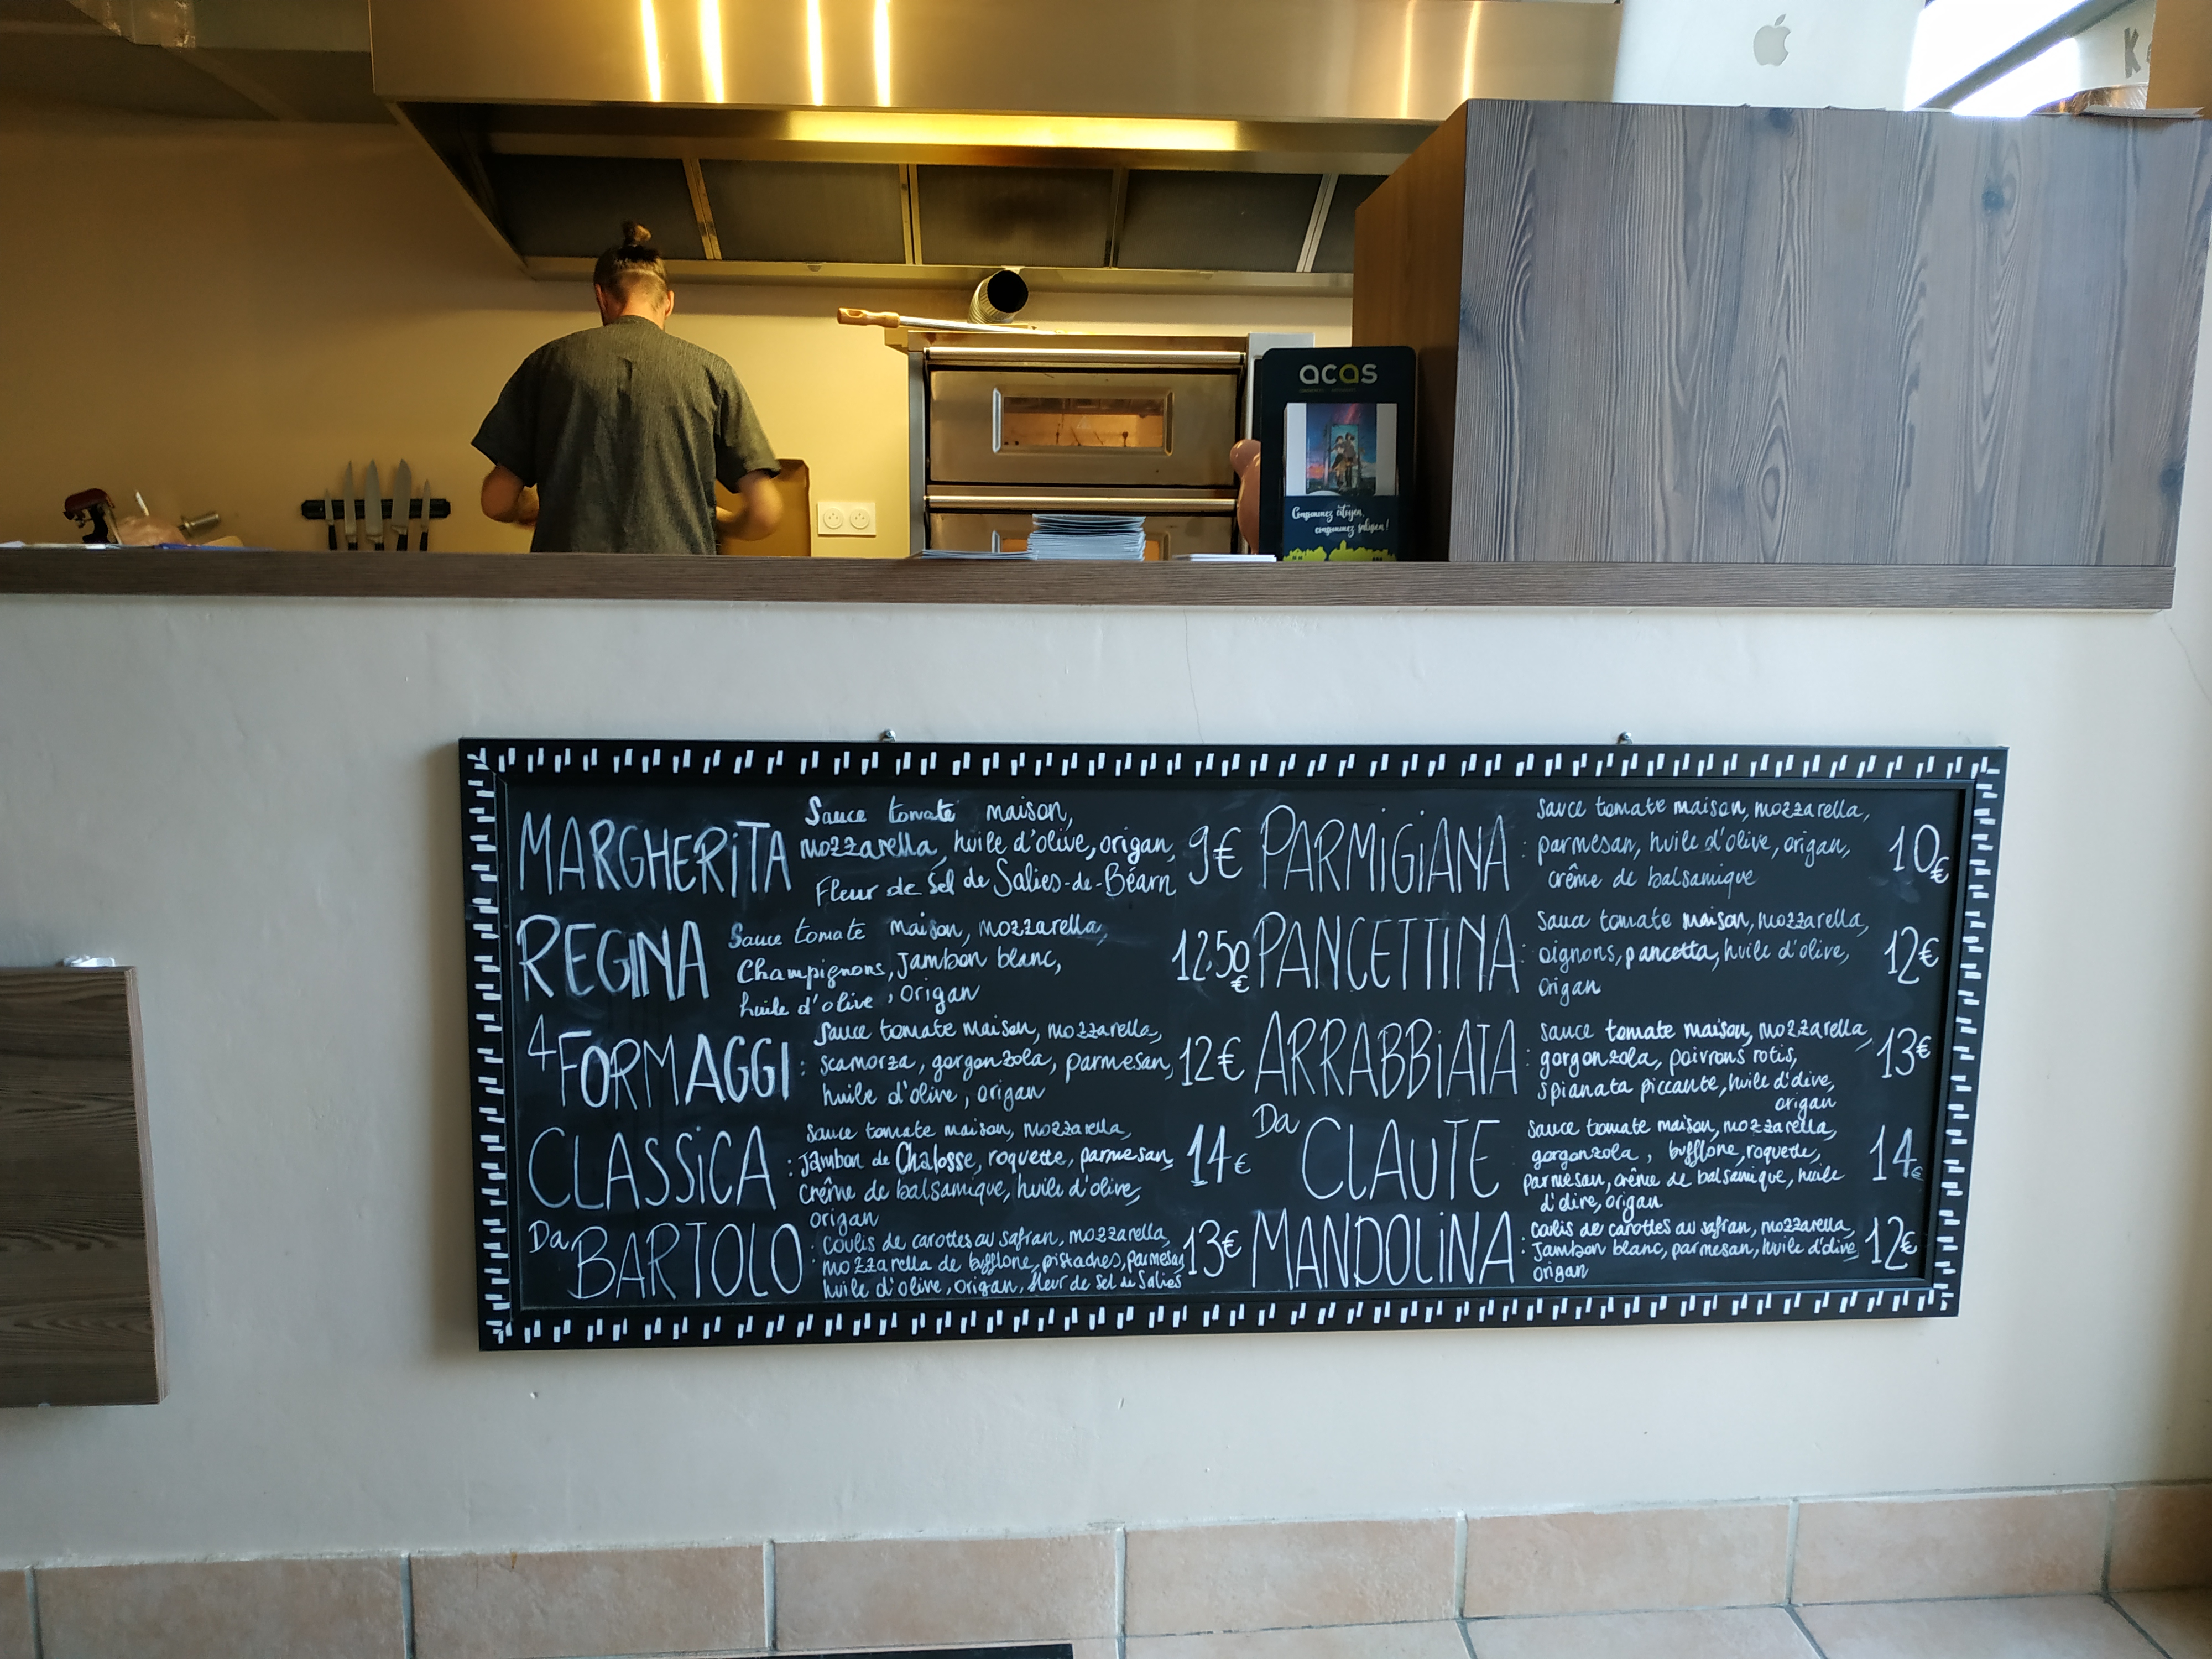 acas
Consommez citoyen,
consommez salisien!
MARGHERiTA
Sauce tomate maison,
mozzarella, huile d'olive, origan,
Fleur de Sel de Salies-de-Béarn
9€
REGINA
Sauce tomate maison, mozzarella,
Champignons, Jambon blanc,
huile d'olive, origan
12.50€
4 FORMAGGI :
Sauce tomate maison, mozzarella,
scamorza, gorgonzola, parmesan,
huile d'olive, origan
12€
CLASSiCA :
Sauce tomate maison, mozzarella,
Jambon de Chalosse, roquette, parmesan,
crême de balsamique, huile d'olive,
origan
14€
Da BARTOLO :
Coulis de carottes au safran, mozzarella,
mozzarella de bufflone, pistaches, parmesan,
huile d'olive, origan, fleur de sel de Salies
13€
PARMiGiANA :
Sauce tomate maison, mozzarella,
parmesan, huile d'olive, origan,
crême de balsamique
10€
PANCETTiNA :
Sauce tomate maison, mozzarella,
oignons, pancetta, huile d'olive,
origan
12€
ARRABBiATA :
sauce tomate maison, mozzarella,
gorgonzola, poivrons rotis,
spianata piccante, huile d'olive,
origan
13€
Da CLAUTE :
sauce tomate maison, mozzarella,
gorgonzola, bufflone, roquette,
parmesan, crême de balsamique, huile
d'olive, origan
14€
MANDOLiNA :
Coulis de carottes au safran, mozzarella,
Jambon blanc, parmesan, huile d'olive,
origan
12€